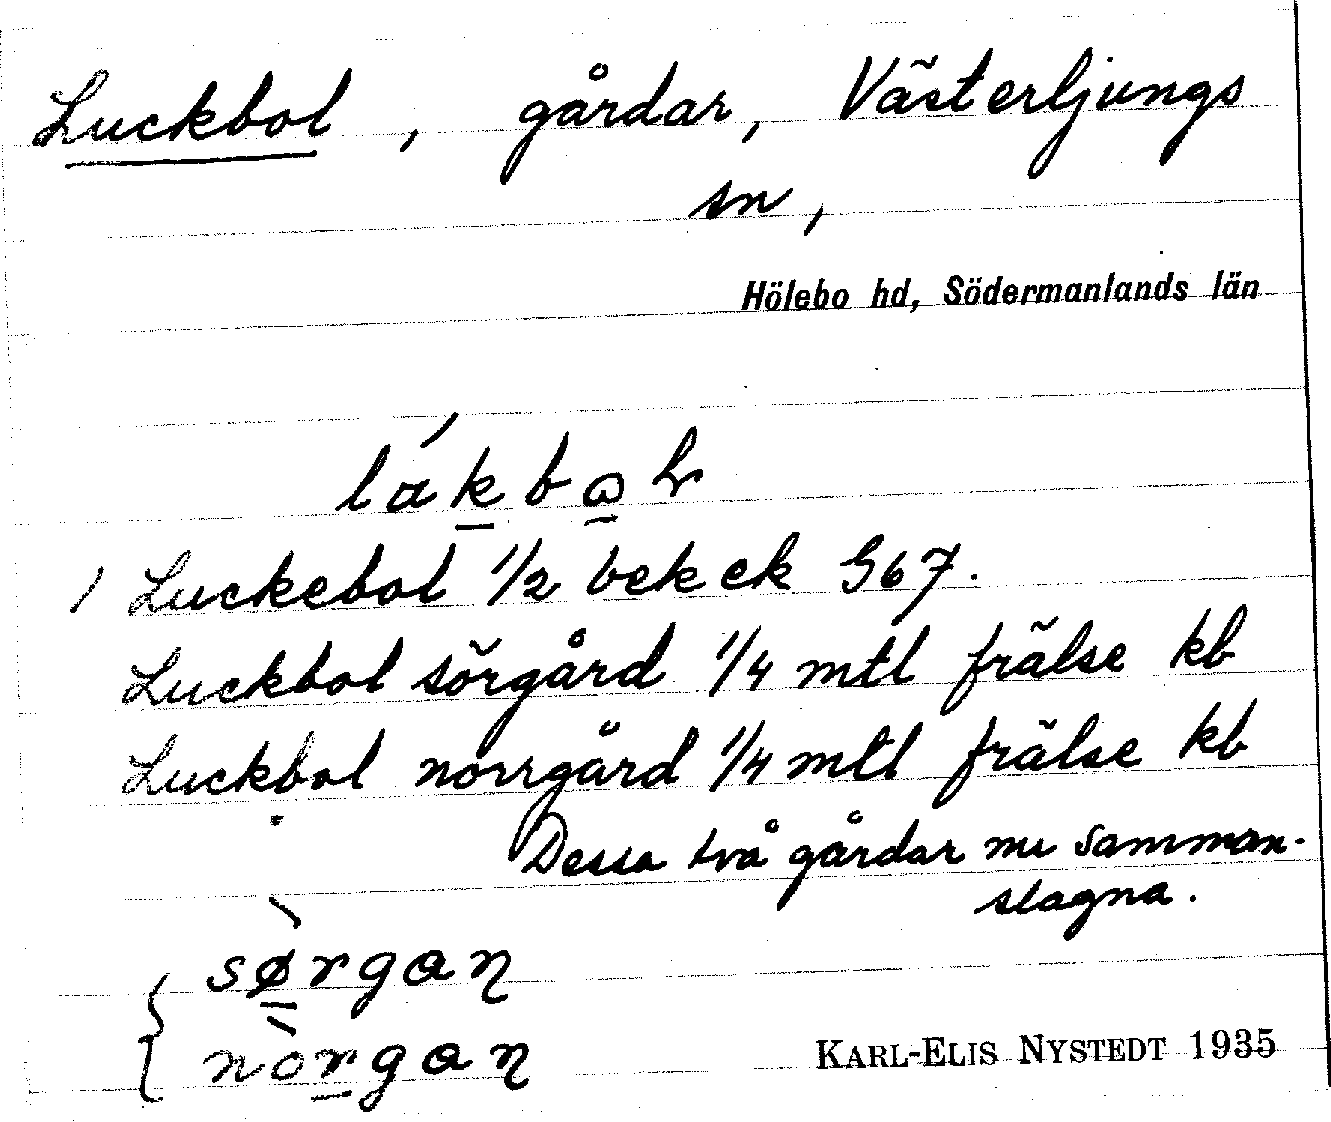 Luckbol, gårdar, Västerljungs
sn,
Hölebo hd, Södermanlands län
/ Luckebol 1/2 bek ek G67.
Luckbol sörgård 1/4 mtl frälse kb
Luckbol norrgård 1/4 mtl frälse kb
Dessa två gårdar nu samman-
slagna.
KARL-ELIS NYSTEDT 1935